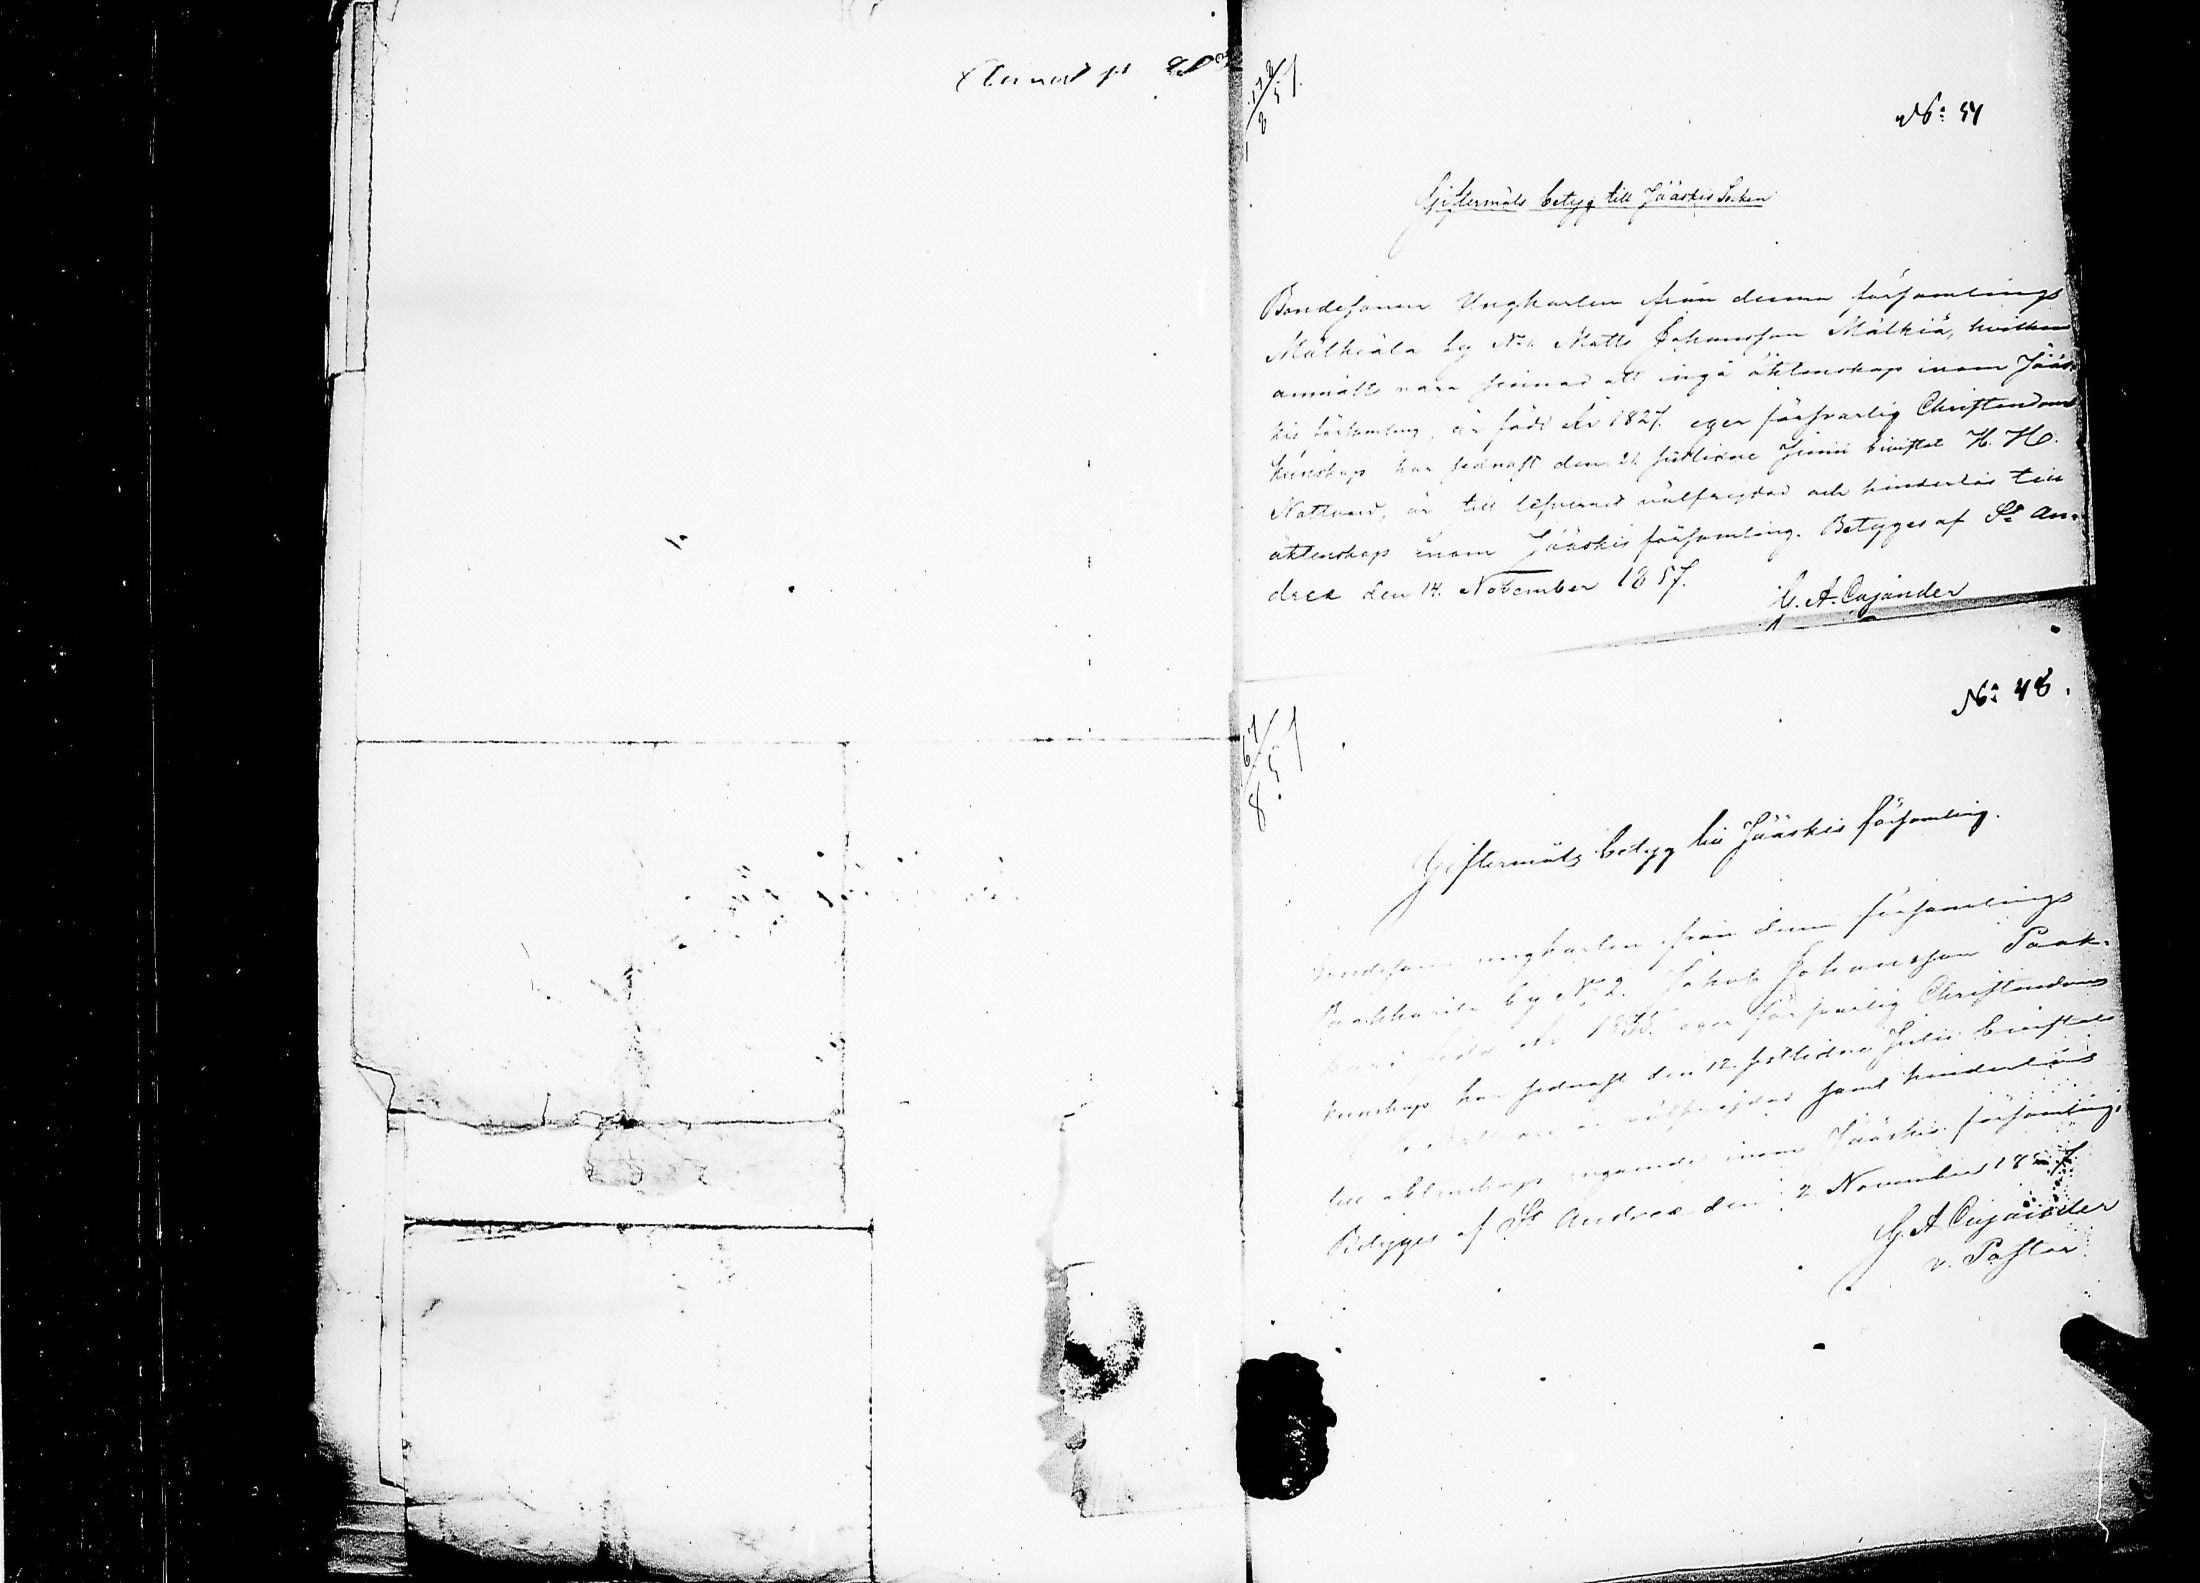 No: 51
Giftermåls betyg till Jääskis Socken
Bondesonen Ungkarlen från denna församlings
Mälkiälä by No 1. Matts Johansson Mälkiä, hvilken
anmälts vara sinnad att ingå äktenskap inom Jääs-
kis församling, är född År 1827. eger försvarlig Christendoms
kunskap har sednast den 21 sistlidne Junii bivistat H. H.
Nattvard, är till lefvernet välfrejdad och hinderlös till
äktenskap inom Jääskis församling. Betyges af St. An-
dreæ den 14. November 1857.
G. A. Cajander
No: 48.
Giftermåls betyg till Jääskis församling.
Bondesonen ungkarlen från denna församlings
by No 2. Jakob Johansson Paak-
kari född År eger försvarlig Christendoms
kunskap har sednast den 12. sistlidne Julii bivistat
H. H. Nattvard är välfrejdad samt hinderlös
till äktenskaps ingående inom Jääskis församling.
Betyges af St. Andreæ den 2 November 1857
G. A. Cajander
v. Pastor